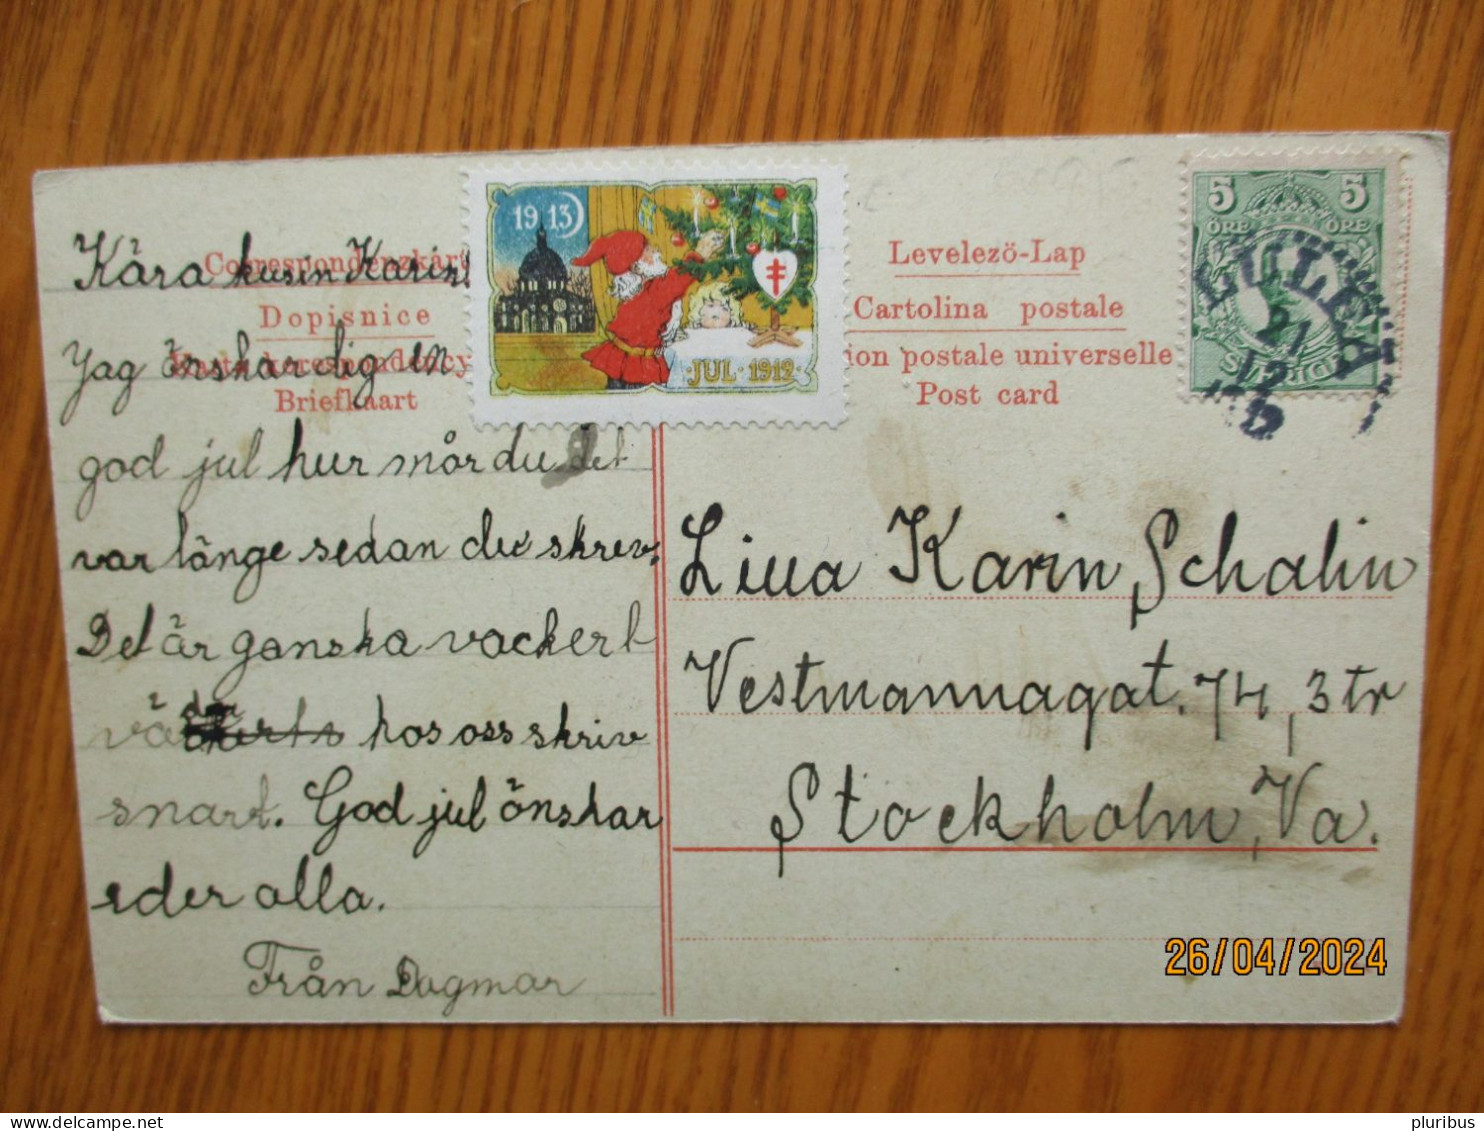 Correspondenzkarte
Dopisnice
Karta korespondencyjna
Briefkaart
Levelező-Lap
Cartolina postale
ion postale universelle
Post card
1913
JUL · 1912
5 5
ÖRE ÖRE
SVERIGE
LULEÅ
21
12
Kära kusin Karin!
Jag önskar dig en
god jul hur mår du det
var länge sedan du skrev.
Det är ganska vackert
väder hos oss skriv
snart. God jul önskar
eder alla.
Från Dagmar
Lilla Karin Schalin
Vestmannagat. 74, 3 tr
Stockholm, Va.
26/04/2024
pluribus